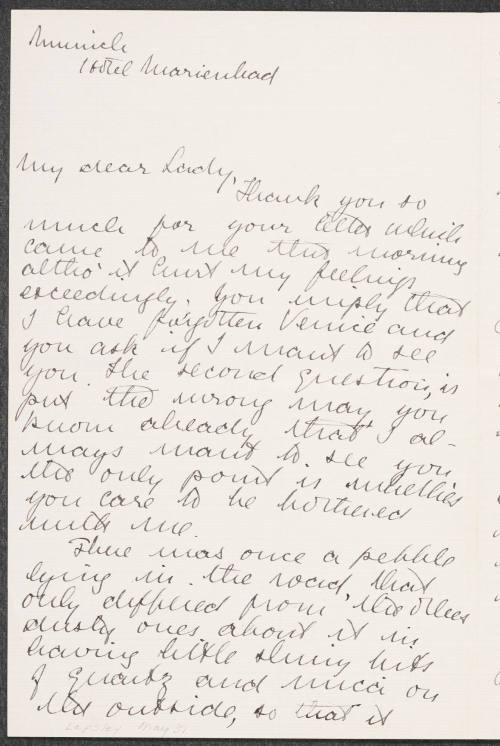 Munich
Hotel Marienbad
My dear Lady,
Thank you so
much for your letter which
came to me this morning
altho' it hurt my feelings
exceedingly. You imply that
I have forgotten Venice and
you ask if I want to see
you. The second question, is
put the wrong way you
know already that I al-
ways want to see you
the only point is whether
you care to be bothered
with me.
There was once a pebble
lying in the road that
only differed from the other
dusty ones about it in
having little shiny bits
of quartz and mica on
the outside, so that it
Lapsley May 31